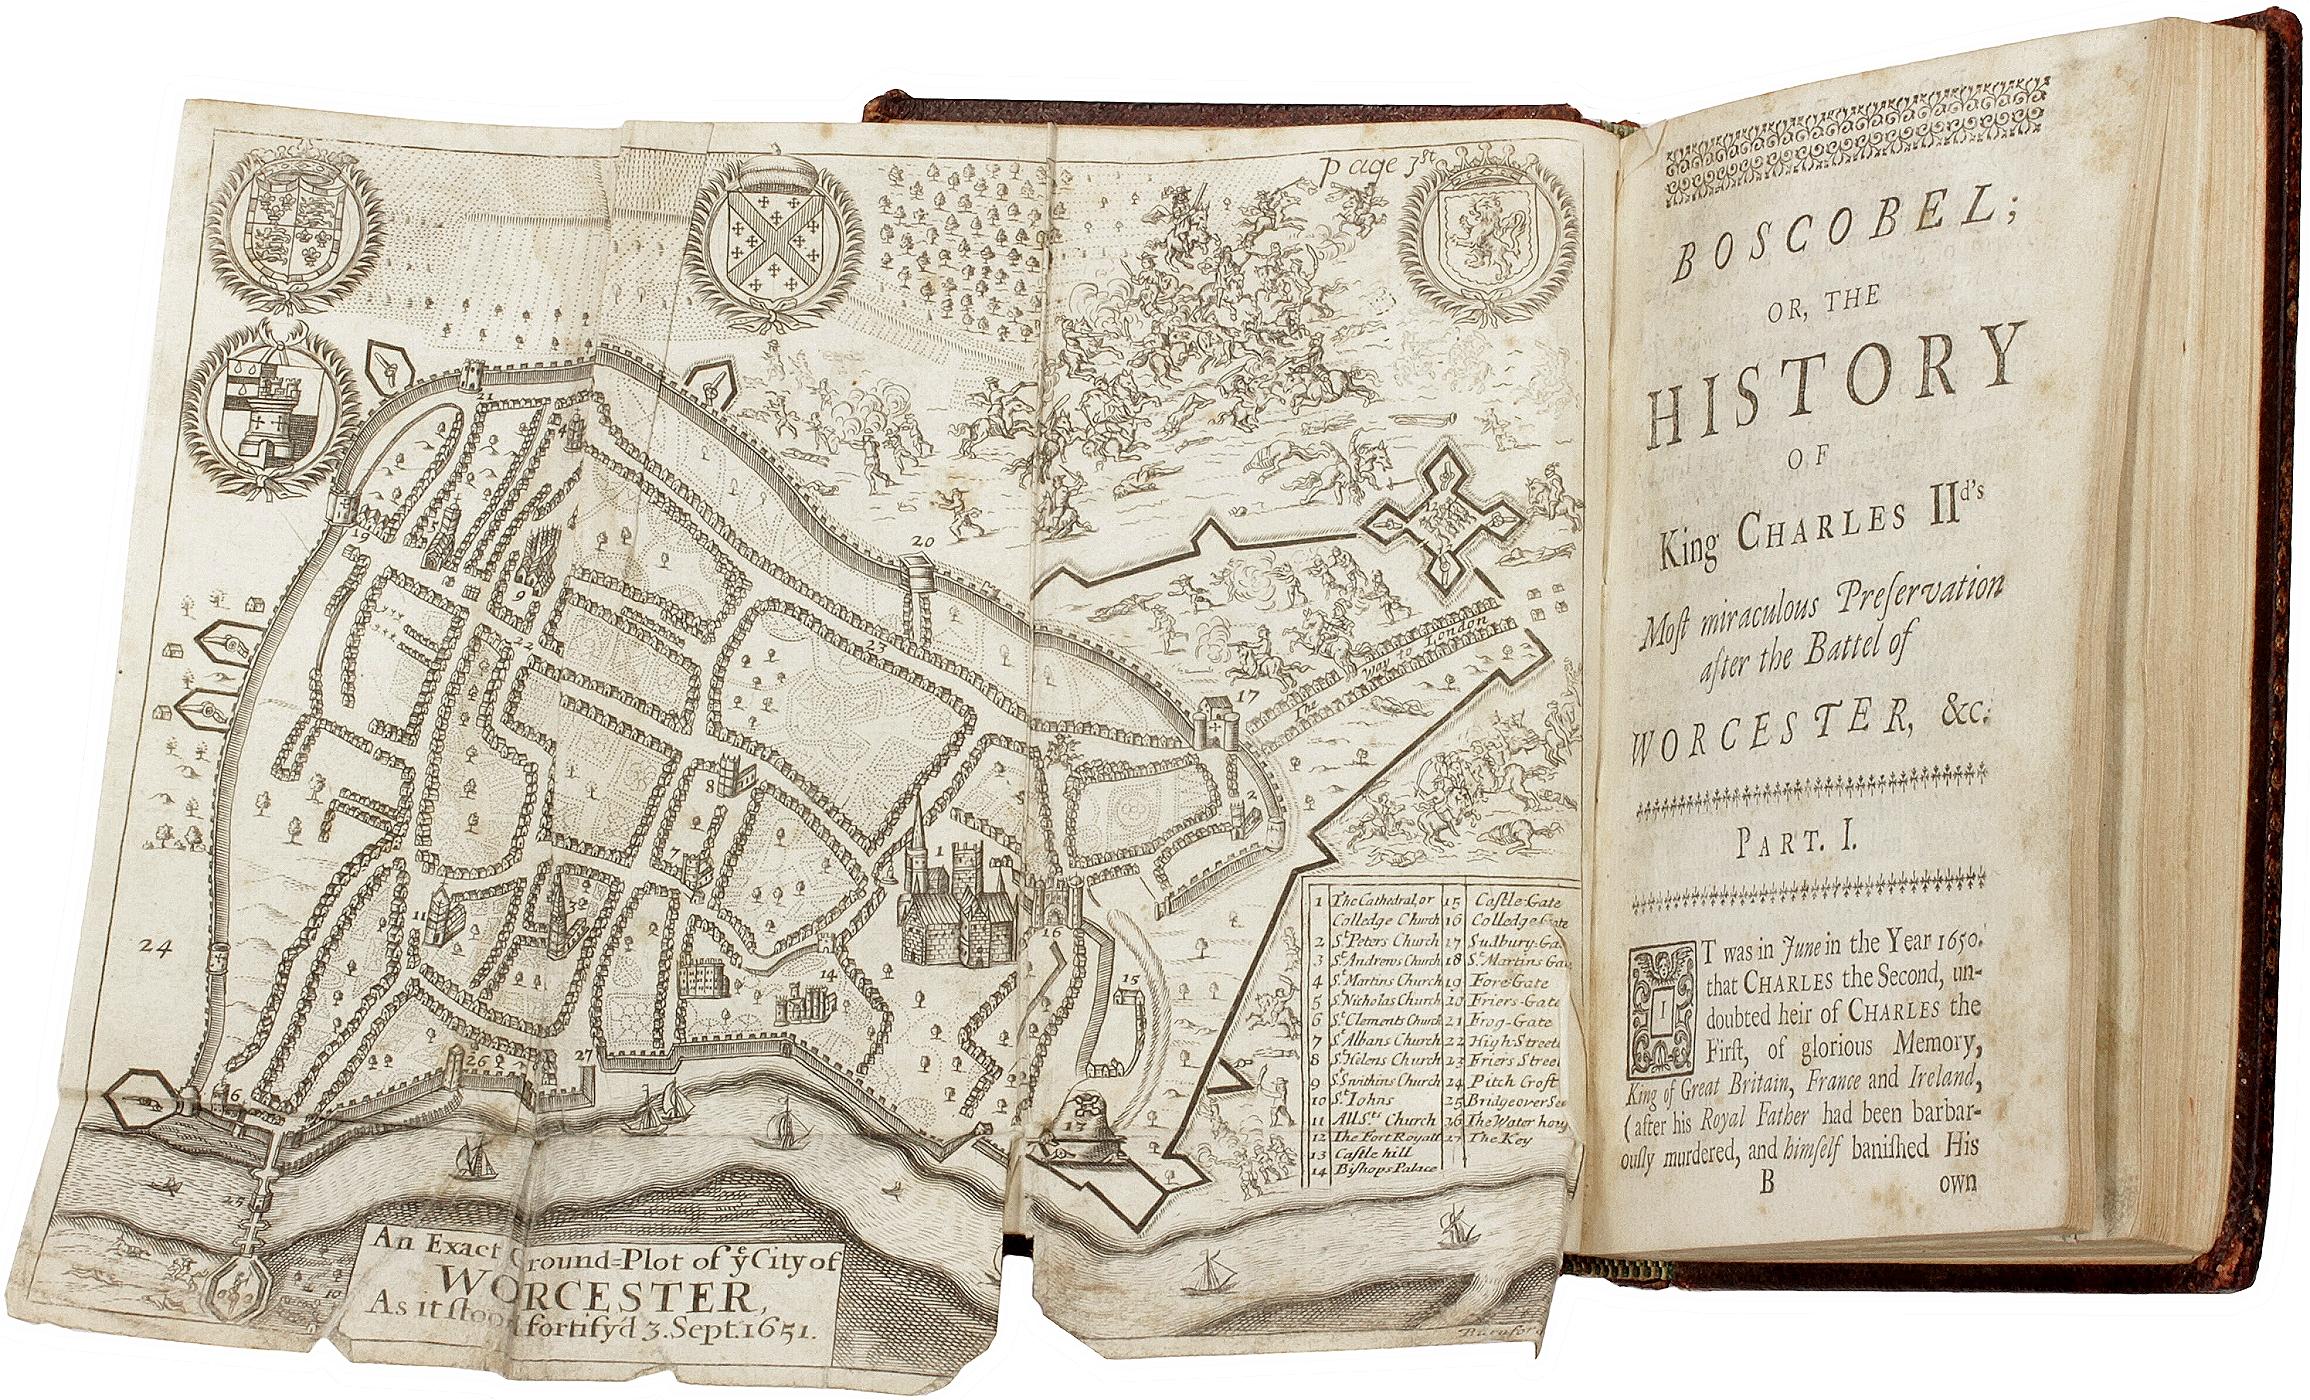 page 3st
The way to London
1 The Cathedral, or 15 Castle-Gate
Colledge Church 16 Colledge-Gate
2 St. Peters Church 17 Sudbury-Ga
3 St. Andrews Church 18 St. Martins Ga
4 St. Martins Church 19 Fore-Gate
5 St. Nicholas Church 20 Friers-Gate
6 St. Clements Church 21 Frog-Gate
7 St. Albans Church 22 High-Streete
8 St. Helens Church 23 Friers Street
9 St. Swithins Church 24 Pitch Croft
10 St. Iohns 25 Bridge over Se
11 All Sts. Church 26 The Water hou
12 The Fort Royall 27 The Key
13 Castle hill
14 Bishops Palace
An Exact Ground=Plot of ye City of
WORCESTER,
As it stood fortify'd 3. Sept. 1651.
21
4
19
9
20
22
23
17
8
2
7
1
11
3
16
24
14
15
26
27
6
13
25
10
BOSCOBEL;
OR, THE
HISTORY
OF
King CHARLES IId's
Moſt miraculous Preſervation
after the Battel of
WORCESTER, &c.
PART. I.
IT was in June in the Year 1650.
that CHARLES the Second, un-
doubted heir of CHARLES the
Firſt, of glorious Memory,
King of Great Britain, France and Ireland,
(after his Royal Father had been barbar-
ouſly murdered, and himſelf baniſhed His
B own